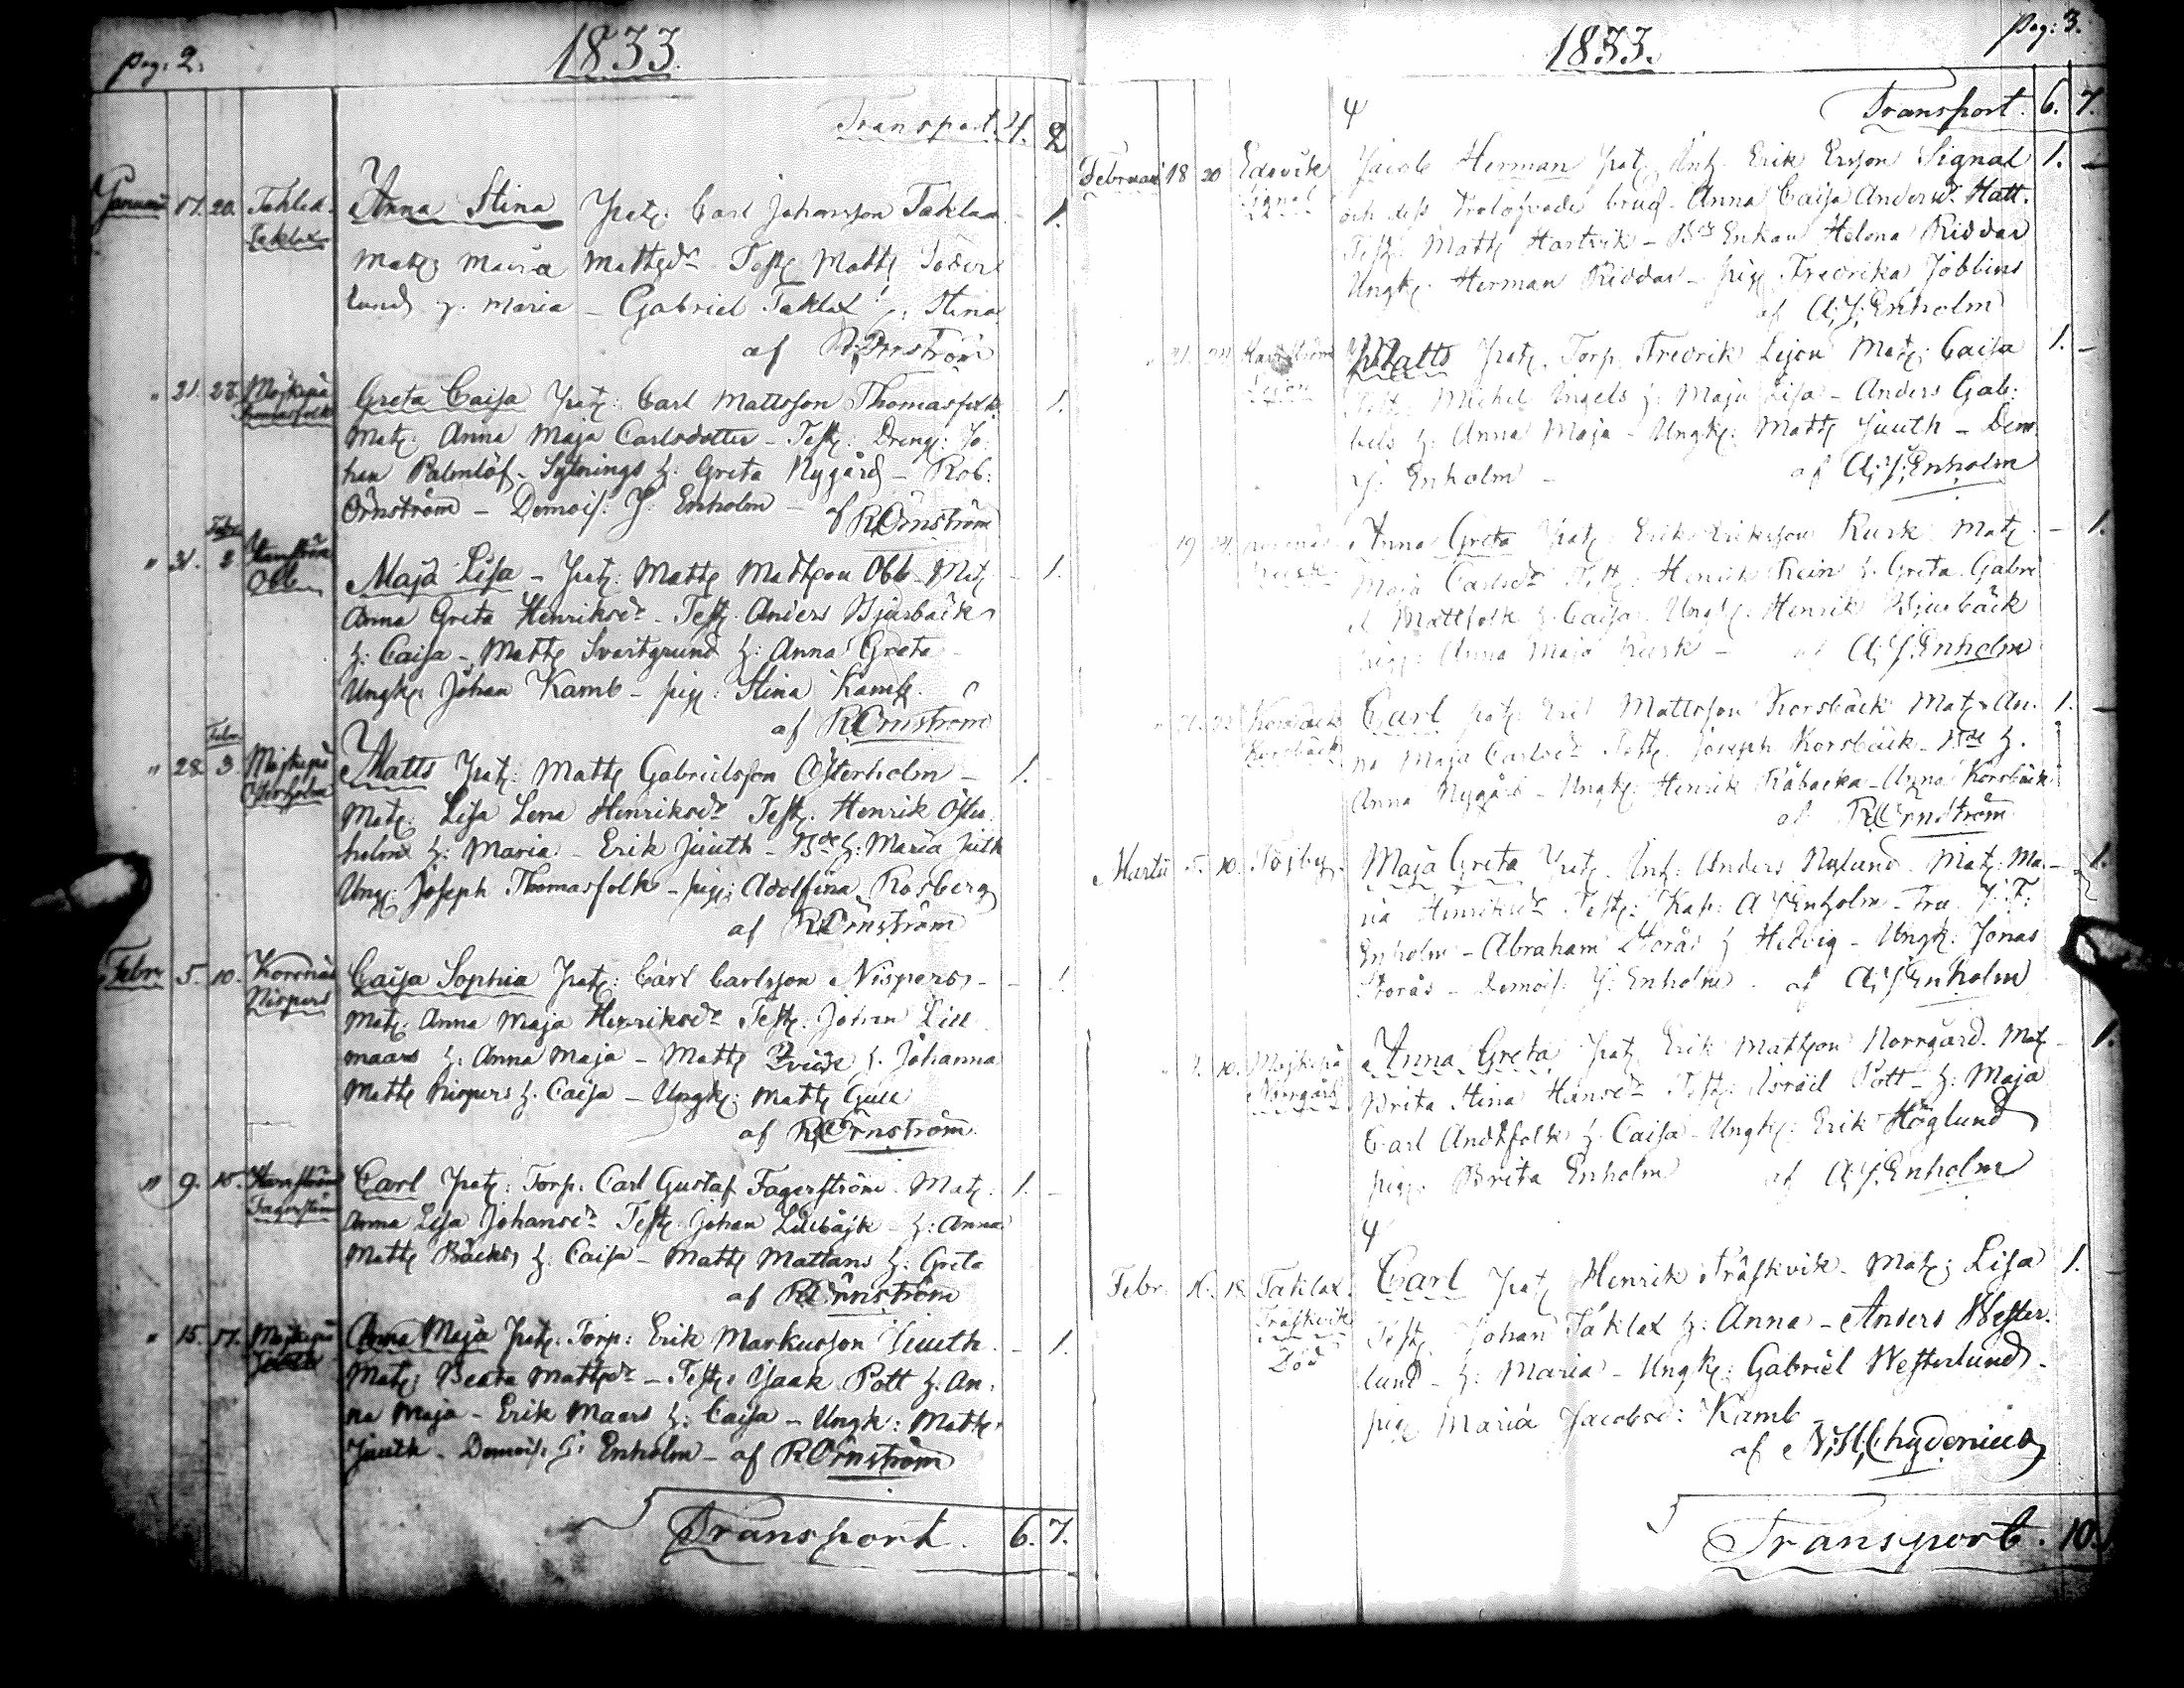 pag: 2.
1833.
Transport. 4. 2
Januari 17. 20. Taklax
Taklax
Anna Stina Pat: Carl Johansson Taklax - 1.
Mat: Maria Mattsdr Test: Matts Söder
lund h. Maria - Gabriel Taklax h: Stina
af R. Örnström
" 21. 27. Molpe
Thomasfolk
Greta Caisa Pat: Carl Mattsson Thomasfolk - 1.
Mat: Anna Maja Carlsdotter - Test: Dreng: Jo-
han Palmlöf - Sytnings h: Greta Nygård - Rob:
Örnström - Demois: J: Enholm - af R Örnström
" 31. Febr. 2
Obb
Maja Lisa - Pat: Matts Mattsson Obb - Mat: - 1.
Anna Greta Henriksdr - Test: Anders Bjursbäck
h: Caisa - Matts Svartgrund h: Anna Greta -
Ungk: Johan Kamb - pig: Stina Kamb.
af R Örnström
" 28. Febr. 3
Österholm
Matts Pat: Matts Gabrielsson Österholm - 1. -
Mat: Lisa Lena Henriksdr Test: Henrik Öster
holm h: Maria - Erik Juuth - Bde h: Maria Juth
Ung: Joseph Thomasfolk - pig: Adolfina Rosberg
af R Örnström
Febr. 5. 10. Korsnäs
Nispers
Caisa Sophia Pat: Carl Carlsson Nispers - - 1.
Mat: Anna Maja Henriksdr Test: Johan Lill
maars h: Anna Maja - Matts h. Johanna
Matts Nispers h. Caisa - Ungk: Matts Gull
af R Örnström
" 9. 10. Harrström
Fagerström
Carl Pat: Torp: Carl Gustaf Fagerström. Mat: 1. -
Anna Lisa Johansdr Test: Johan Lillbåsk - h: Anna
Matts Bäcks h. Caisa - Matts Mattans h: Greta
af R Örnström
" 15. 17.
Juuth
Anna Maja Pat: Torp: Erik Markusson Juuth - 1.
Mat: Beata Mattsdr - Test: Isaak Pott h. An-
na Maja - Erik Maars h: Caisa - Ungk: Matts
Juuth - Demois: J: Enholm - af R Örnström
Transport. 6. 7.
pag: 3.
1833.
Transport. 6. 7.
Februari 18 20 Edsvik
Signal
Jacob Herman Pat: Inh: Erik Ersson Signal 1. -
och dess trolofvade brud Anna Caisa Andersdr Hatt.
Test: Matts Hartvik - Bde Enkan Helena Riddar
Ungk: Herman Riddar - pig: Fredrika Jöbbins
af A: J: Enholm
Harrström
Lejon
Matts Pat: Torp: Fredrik Lejon Mat: Caisa 1. -
Test: Michel Ingels h: Maja Lisa - Anders Gab-
bels h: Anna Maja - Ungk: Matts Juuth - Dem:
J: Enholm - af A: J: Enholm
19 24 Korsnäs
Rusk
Anna Greta Pat: Erik Eriksson Rusk Mat: - 1.
Maja Carlsdr Test: Henrik Rein h. Greta. Gabri
el Mattfolk h. Caisa. Ungk: Henrik Bjursbäck
pig: Anna Maja Rusk - af A: J. Enholm
Korsbäck
Korsbäck
Carl Pat: Eric Mattsson Korsbäck Mat: An- 1. -
na Maja Carlsdr Test: Joseph Korsbäck - Bde h.
Anna Nygård - Ungk: Henrik Råbacka - Anna Korsbäck
af R Örnström
Martii 5. 10. Töjby
Maja Greta Pat: Inh: Anders Nylund. Mat: Ma- - 1.
ria Henriksdr Test: Kap: A J Enholm - Fru J: F:
Enholm - Abraham Storås h Hedvig - Ungk: Jonas
Storås - Demois: J: Enholm - af A: J Enholm
7. 10.
Norrgård
Anna Greta Pat: Erik Mattsson Norrgård. Mat: - 1.
Brita Stina Hansdr Test: Israel Pott - h: Maja
Carl Andtfolk h. Caisa - Ungk: Erik Höglund
pig: Brita Enholm af A: J. Enholm
Febr. 16. 18. Taklax
Träskvik
Död
Carl Pat: Henrik Träskvik - Mat: Lisa 1. -
Test: Johan Taklax h: Anna - Anders Wester-
lund - h: Maria - Ungk: Gabriel Westerlund -
pig: Maria Jacobsd: Kamb
af N: H: Chydenius
Transport. 10.